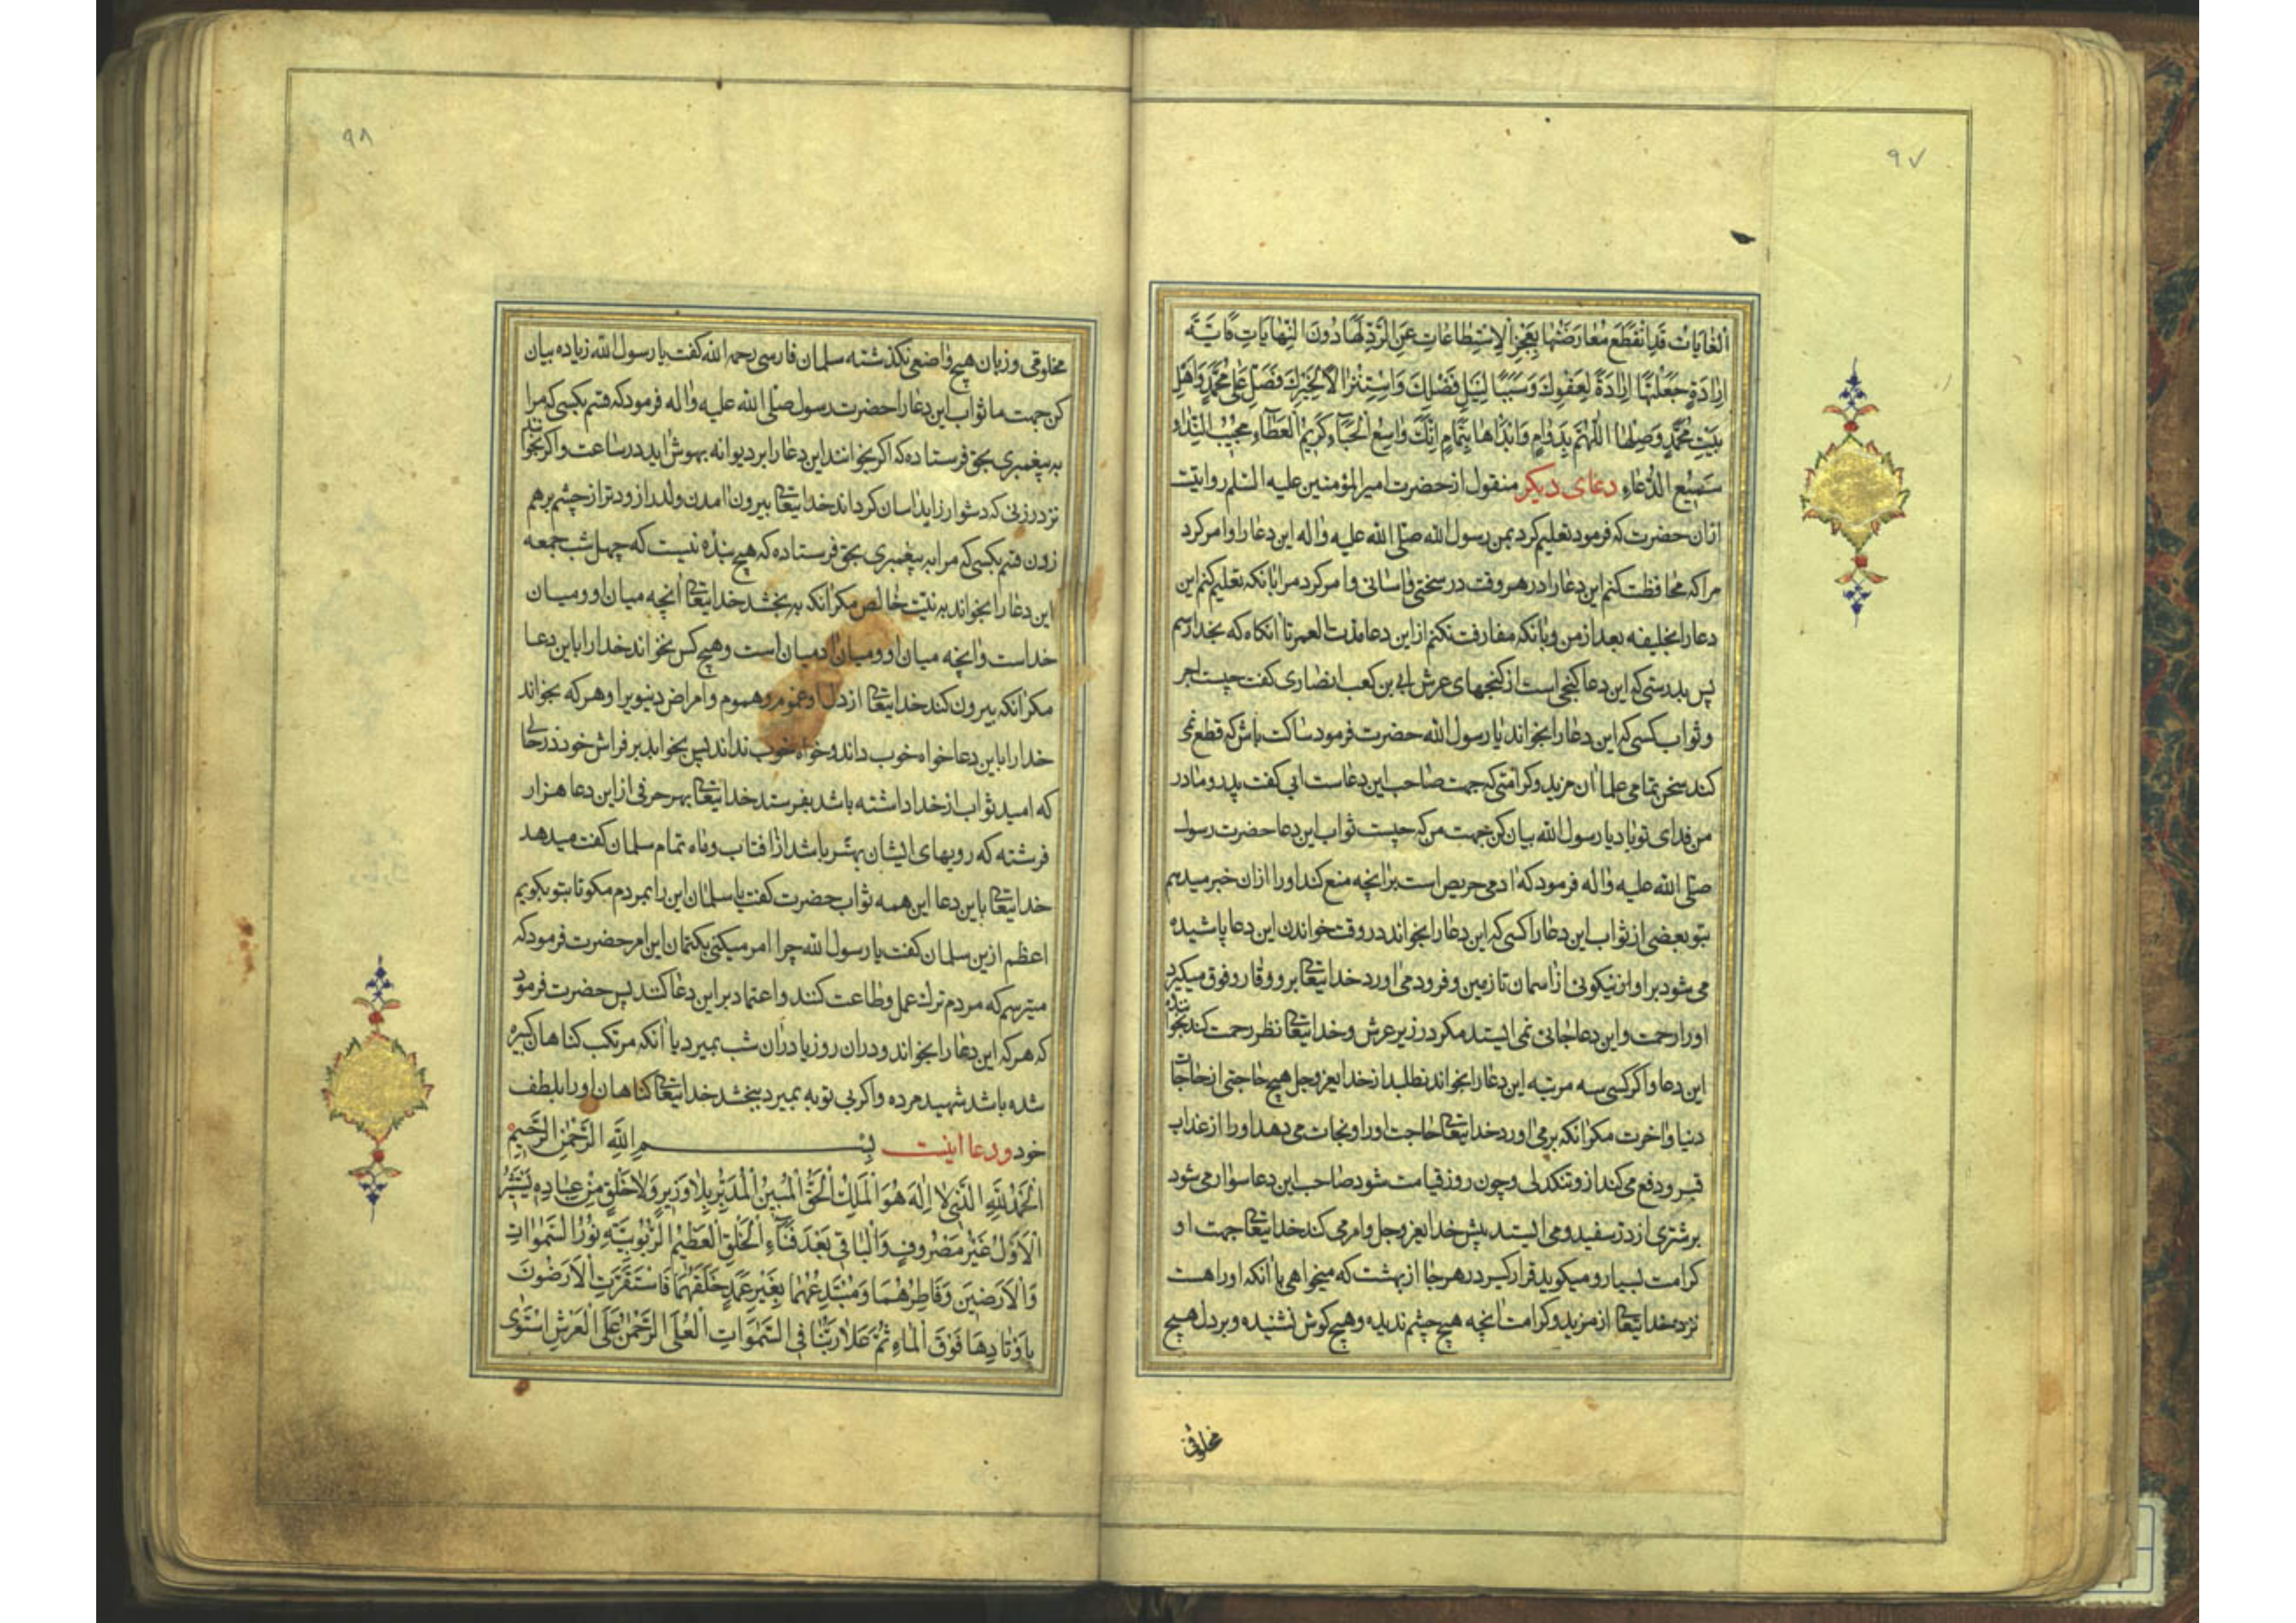 ٩٧
الغایات قد انقطع معارضتها بعجز الاستطاعات عن الرد لها دون النهایات فایة
ارادة جعلتها ارادة لعفوك و سببا لنیل فضلك و استنزالا لخیرك فصل علی محمد و اهل
بیت محمد وصلها اللهم بدوام وابداها بتمام انك واسع الحباء کریم العطاء مجیب النداء
سمیع الدعاء دعای دیکر منقول از حضرت امیر المؤمنین علیه السلم روایتت
ازان حضرت که فرمود تعلیم کرد بمن رسول الله صلی الله علیه واله این دعا را و امر کرد
مرا که محافظت کنم این دعا را در هر وقت در سختی و اسانی و امر کرد مرا بانکه تعلیم کنم این
دعا را بخلیفه بعد از من و بانکه مفارقت نکنم از این دعا مدت العمر تا انکاه که بخدا رسم
پس بدرستی که این دعا کنجی است از کنجهای عرش ابی بن کعب انصاری کفت چیست اجر
و ثواب کسی که این دعا را بخواند یا رسول الله حضرت فرمود ساکت باش که قطع نمی
کند سخن تمامی علما ان مزید و کرامتی که جهت صاحب این دعاست ابی کفت پدر و مادر
من فدای تو باد یا رسول الله بیان کن جهت من که چیست ثواب این دعا حضرت رسول
صلی الله علیه واله فرمود که ادمی حریص است بر انچه منع کند او را ازان خبر میدهم
بتو بعضی از ثواب این دعا را کسی که این دعا را بخواند در وقت خواندن این دعا پاشیده
می شود بر او از نیکوئی از اسمان تا زمین و فرود می اورد خدایتعالی برو وقار و فوق میکیرد
او را رحمت و این دعا جائی نمی ایستد مکر در زیر عرش و خدایتعالی نظر رحمت کند بخوانندهٔ
این دعا و اکر کسی سه مرتبه این دعا را بخواند نطلبد از خدایعز وجل هیچ حاجتی از حاجات
دنیا و اخرت مکر انکه بر می اورد خدایتعالی حاجت او را و نجات می دهد او را از عذاب
قبر و دفع می کند ازو تنکدلی و چون روز قیامت شود صاحب این دعا سوار می شود
بر شتری از در سفید و می ایستد پیش خدایعز وجل و امر می کند خدایتعالی جهت او
کرامت بسیار و میکوید قرار کیر در هر جا از بهشت که میخواهی با انکه او را هست
نزد خدایتعالی از مزید و کرامت انچه هیچ چشم ندیده و هیچ کوش نشنیده و بر دل هیچ
مخلوقی
٩٨
مخلوقی و زبان هیچ واضعی نکذشته سلمان فارسی رحمه الله کفت یا رسول الله زیاده بیان
کن جهت ما ثواب این دعا را حضرت رسول صلی الله علیه واله فرمود که قسم بکسی که مرا
به پیغمبری بحق فرستاده که اکر بخوانند این دعا را بر دیوانه بهوش اید در ساعت و اکر بخوانند
نزد زنی که دشوار زاید اسان کرداند خدایتعالی بیرون امدن ولد را زودتر از چشم برهم
زدن قسم بکسی که مرا به پیغمبری بحق فرستاده که هیچ بنده نیست که چهل شب جمعه
این دعا را بخواند به نیت خالص مکر انکه به بخشد خدایتعالی انچه میان او و میان
خداست و انچه میان او و میان ادمیان است و هیچ کس نخواند خدا را باین دعا
مکر انکه بیرون کند خدایتعالی از دل او غموم و هموم و امراض دنیوی را و هر که بخواند
خدا را باین دعا خواه خوب داند و خواه خوب نداند پس بخوابد بر فراش خود در حالی
که امید ثواب از خدا داشته باشد بفرستد خدایتعالی بهر حرفی از این دعا هزار
فرشته که رویهای ایشان بهتر باشد از افتاب و ماه تمام سلمان کفت میدهد
خدایتعالی باین دعا این همه ثواب حضرت کفت یا سلمان این را بمردم مکو تا بتو بکویم
اعظم ازین سلمان کفت یا رسول الله چرا امر میکنی بکتمان این امر حضرت فرمود که
میترسم که مردم ترك عمل و طاعت کنند و اعتماد بر این دعا کنند پس حضرت فرمود
که هر که این دعا را بخواند و دران روز یا دران شب بمیرد با انکه مرتکب کناهان کبیره
شده باشد شهید مرده و اکر بی توبه بمیرد ببخشد خدایتعالی کناهان او را بلطف
خود و دعا اینست بسم الله الرحمن الرحیم
الحمد لله الذی لا اله هو الملك الحق المبین المدبر بلا وزیر ولا خلق من عباده یستشیر
الاول غیر مصروف والباقی بعد فناء الخلق العظیم الربوبیة نور السموات
والارضین و فاطرهما و مبتدعهما بغیر عمد خلقهما فاستقرت الارضون
باوتادها فوق الماء ثم علا ربنا فی السموات العلی الرحمن علی العرش استوی